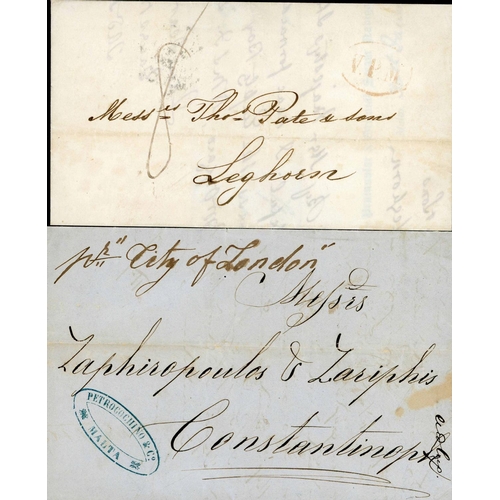 8
V.P.M.
Mess.rs Tho.s Pate & sons
Leghorn
pr "City of London"
Messrs
Zaphiropoulos & Zariphis
Constantinople
PETROCOCHINO & Co.
MALTA